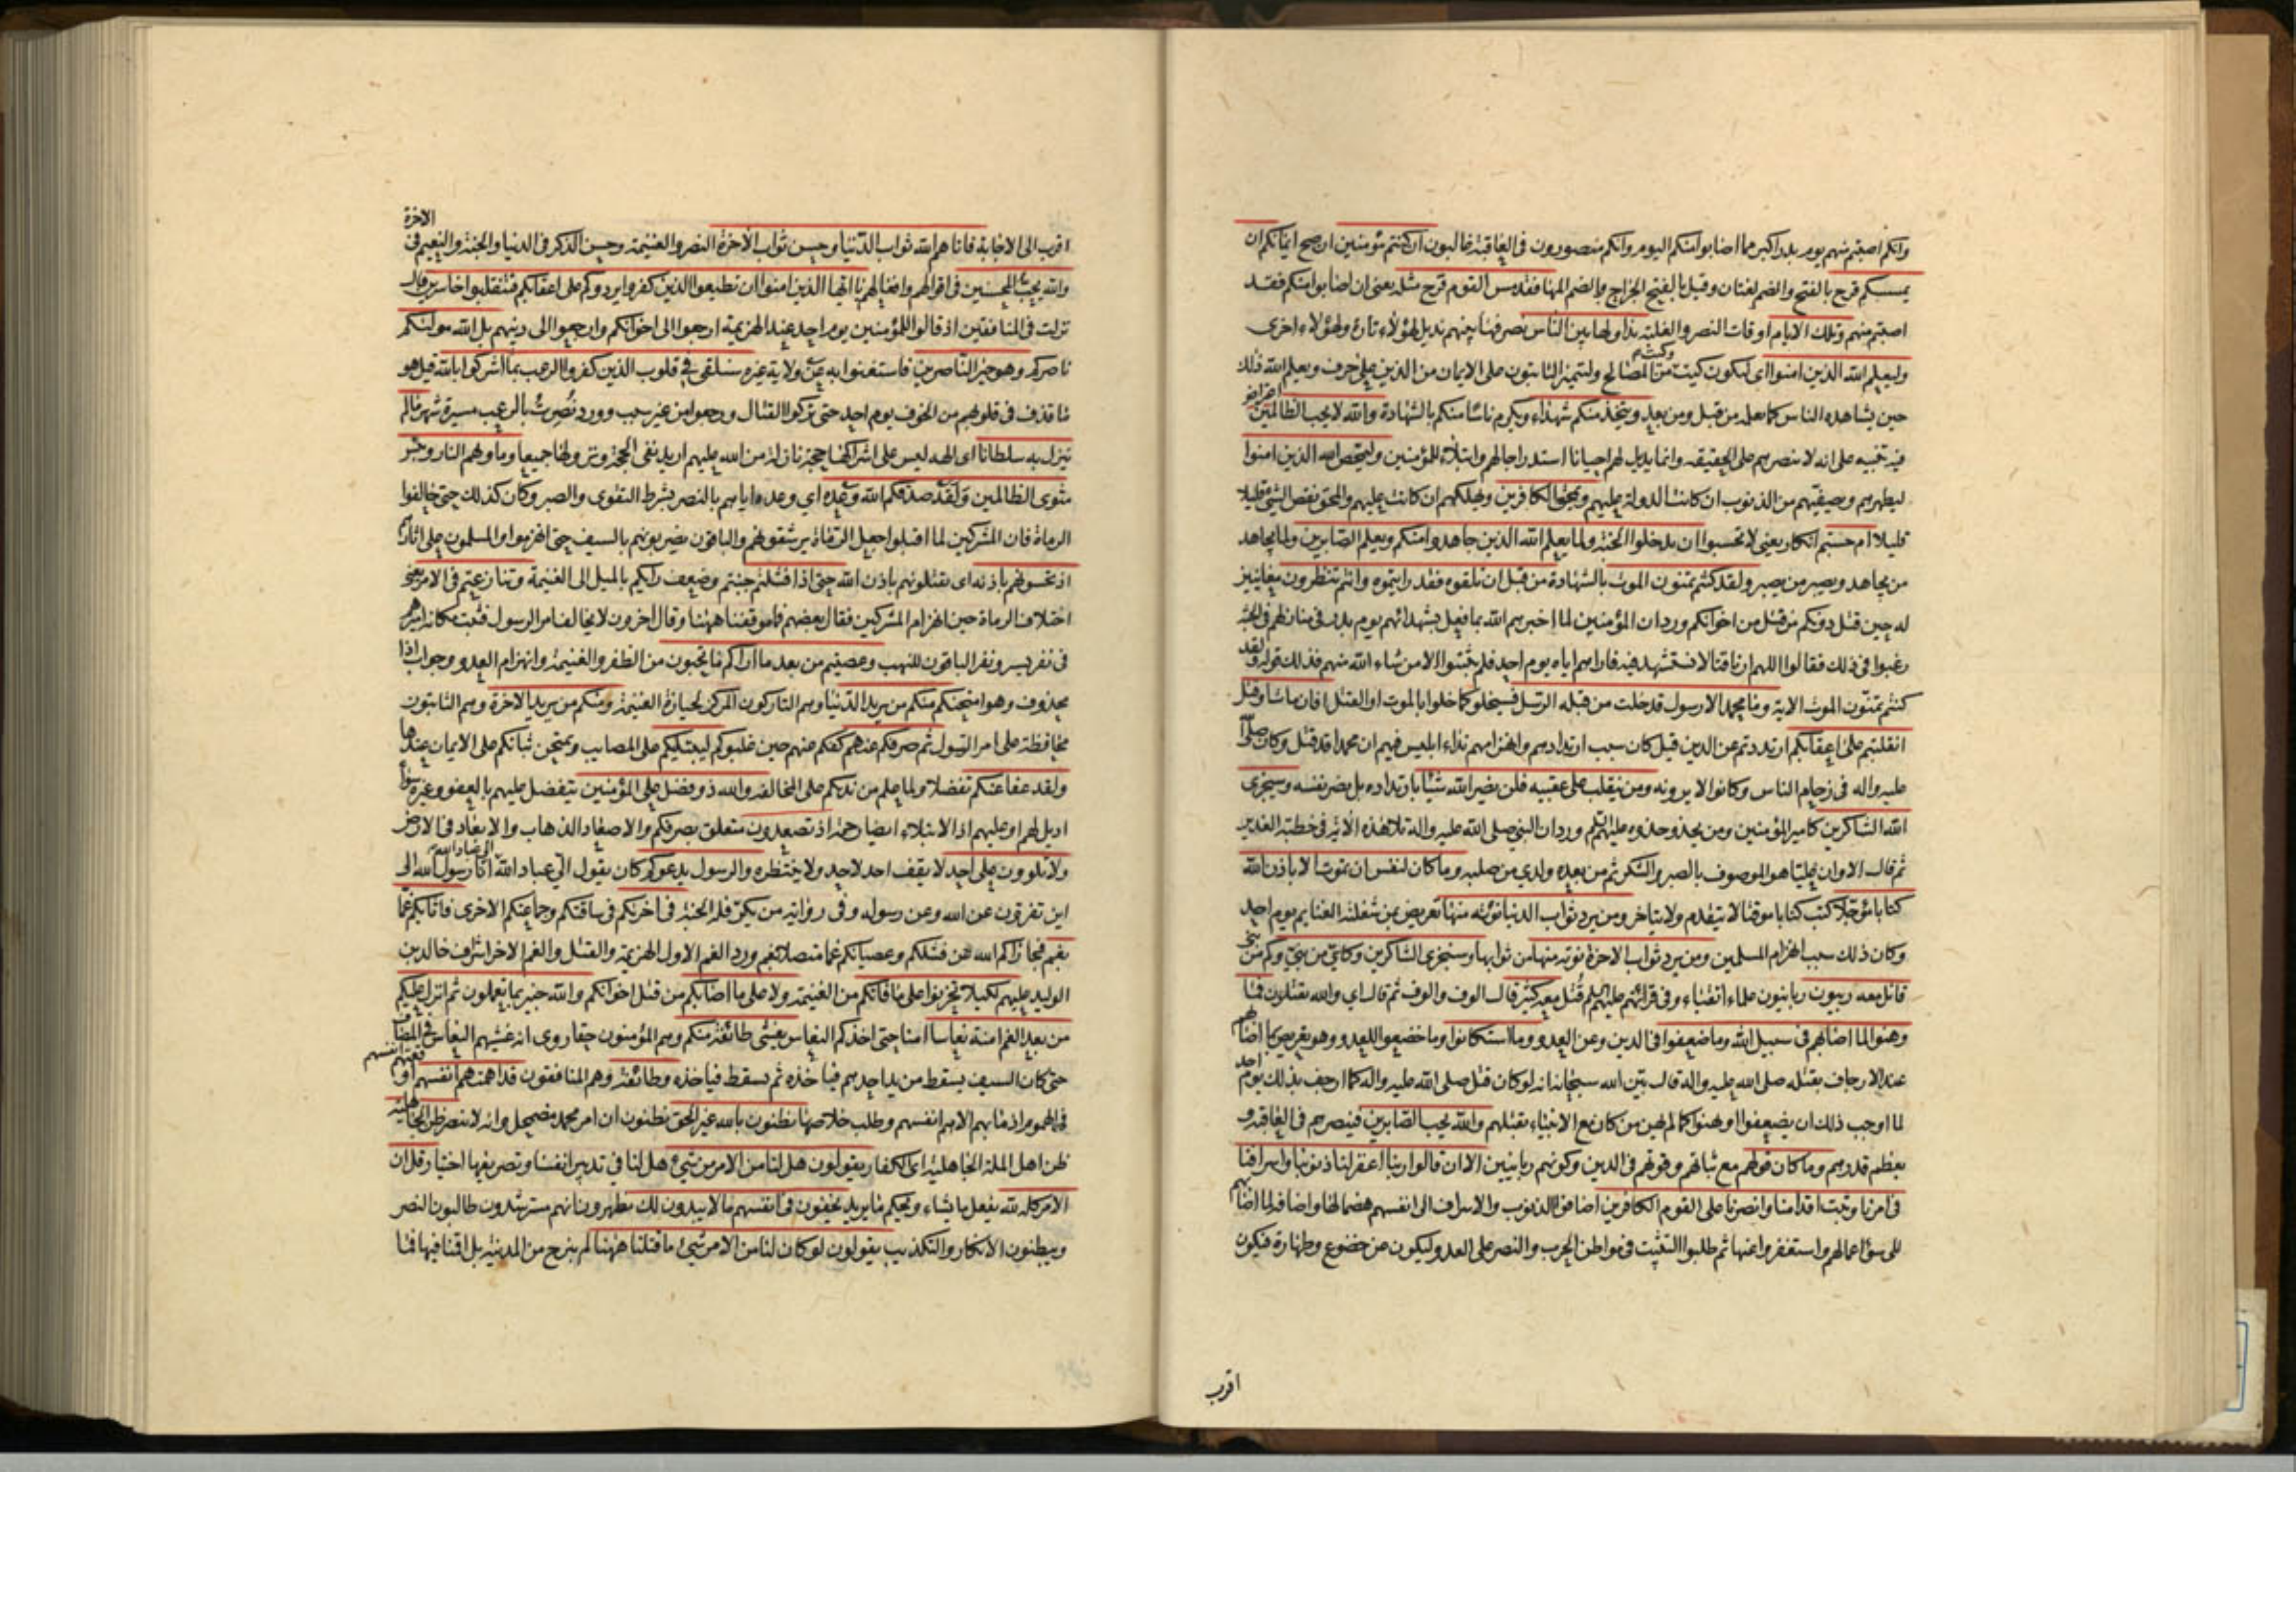 وانكم اصبتم منهم يوم بدر اكبر مما اصابوا منكم اليوم وانكم منصورون في العاقبة غالبون ان كنتم مؤمنين ان صح ايمانكم ان
يمسسكم قرح بالفتح والضم لغتان وقيل بالفتح الجراح وبالضم المها فقد مس القوم قرح مثله يعني ان اصابوا منكم فقد
اصبتم منهم وتلك الايام اوقات النصر والغلبة نداولها بين الناس نصرفها بينهم نديل لهؤلاء تارة ولهؤلاء اخرى
وليعلم الله الذين امنوا اي ليكون كيت وكيت من المصالح وليتميز الثابتون على الايمان من الذين على حرف ويعلم الله ذلك
حين يشاهده الناس كما علمه من قبل ومن بعد ويتخذ منكم شهداء ويكرم ناسا منكم بالشهادة والله لا يحب الظالمين اعتراض
فيه تنبيه على انه لا ينصرهم على الحقيقة وانما يديل لهم احيانا استدراجا لهم وابتلاء للمؤمنين وليمحص الله الذين امنوا
ليطهرهم ويصفيهم من الذنوب ان كانت الدولة عليهم ويمحق الكافرين ويهلكهم ان كانت عليهم والمحق نقص الشئ قليلا
قليلا ام حسبتم انكار يعني لا تحسبوا ان تدخلوا الجنة ولما يعلم الله الذين جاهدوا منكم ويعلم الصابرين ولما يجاهد
من يجاهد ويصبر من يصبر ولقد كنتم تمنون الموت بالشهادة من قبل ان تلقوه فقد رايتموه وانتم تنظرون معاينين
له حين قتل دونكم من قتل من اخوانكم ورد ان المؤمنين لما اخبرهم الله بما فعل بشهدائهم يوم بدر في منازلهم في الجنة
رغبوا في ذلك فقالوا اللهم ارنا قتالا نستشهد فيه فاراهم اياه يوم احد فلم يثبتوا الا من شاء الله منهم فذلك قوله ولقد
كنتم تمنون الموت الاية وما محمد الا رسول قد خلت من قبله الرسل فسيخلو كما خلوا بالموت او القتل افان مات او قتل
انقلبتم على اعقابكم ارتددتم عن الدين قيل كان سبب ارتدادهم وانهزامهم نداء ابليس فيهم ان محمدا قد قتل وكان صلى الله
عليه واله في زحام الناس وكانوا لا يرونه ومن ينقلب على عقبيه فلن يضر الله شيئا بارتداده بل يضر نفسه وسيجزي
الله الشاكرين كامير المؤمنين ومن يحذو حذوه عليهم ورد ان النبي صلى الله عليه واله تلا هذه الاية في خطبة الغدير
ثم قال الا وان عليا هو الموصوف بالصبر والشكر ثم من بعده ولدي من صلبه وما كان لنفس ان تموت الا باذن الله
كتابا مؤجلا كتب كتابا موقتا لا يتقدم ولا يتاخر ومن يرد ثواب الدنيا نؤته منها تعريض بمن شغلته الغنايم يوم احد
وكان ذلك سبب انهزام المسلمين ومن يرد ثواب الاخرة نوته منها من ثوابها وسنجزي الشاكرين وكاين من نبي وكم من نبي
قاتل معه ربيون ربانيون علماء اتقياء وفي قرائتهم عليهم السلم قتل معه كثير قال الوف والوف ثم قال اي والله يقتلون فما
وهنوا لما اصابهم في سبيل الله وما ضعفوا في الدين وعن العدو وما استكانوا وما خضعوا للعدو وهو تعريض بما اصابهم
عند الارجاف بقتله صلى الله عليه واله قال بين الله سبحانه انه لو كان قتل صلى الله عليه واله كما ارجف بذلك يوم احد
لما اوجب ذلك ان يضعفوا او يهنوا كما لم يهن من كان مع الانبياء بقتلهم والله يحب الصابرين فينصرهم في العاقبة و
يعظم قدرهم وما كان قولهم مع ثباتهم وقوتهم في الدين وكونهم ربانيين الا ان قالوا ربنا اغفر لنا ذنوبنا واسرافنا
في امرنا وثبت اقدامنا وانصرنا على القوم الكافرين اضافوا الذنوب والاسراف الى انفسهم هضما لها واضافة لما اصابهم
الى سوء اعمالهم واستغفروا عنها ثم طلبوا التثبيت في مواطن الحرب والنصر على العدو ليكون عن خضوع وطهارة فيكون
اقرب
اقرب الى الاجابة فاتاهم الله ثواب الدنيا وحسن ثواب الاخرة النصر والغنيمة وحسن الذكر في الدنيا والجنة والنعيم في الاخرة
والله يحب المحسنين في اقوالهم وافعالهم يا ايها الذين امنوا ان تطيعوا الذين كفروا يردوكم على اعقابكم فتنقلبوا خاسرين قال
نزلت في المنافقين اذ قالوا للمؤمنين يوم احد عند الهزيمة ارجعوا الى اخوانكم وارجعوا الى دينهم بل الله موليكم
ناصركم وهو خير الناصرين فاستغنوا به عن ولاية غيره سنلقي في قلوب الذين كفروا الرعب بما اشركوا بالله قيل هو
ما قذف في قلوبهم من الخوف يوم احد حتى تركوا القتال ورجعوا من غير سبب وورد نصرت بالرعب مسيرة شهر ما لم
ينزل به سلطانا اي الهة ليس على اشراكها حجة نازلة من الله عليهم اريد نفي الحجة ونزولها جميعا وماويهم النار وبئس
مثوى الظالمين ولقد صدقكم الله وعده اي وعده اياهم بالنصر بشرط التقوى والصبر وكان كذلك حتى خالفوا
الرماة فان المشركين لما اقبلوا جعل الرماة يرشقونهم والباقون يضربونهم بالسيف حتى انهزموا والمسلمون على اثارهم
اذ تحسونهم باذنه اي تقتلونهم باذن الله حتى اذا فشلتم جبنتم وضعف رايكم بالميل الى الغنيمة وتنازعتم في الامر يعني
اختلاف الرماة حين انهزام المشركين فقال بعضهم فما موقفنا ههنا وقال اخرون لا نخالف امر الرسول فثبت مكانه اميرهم
في نفر يسير ونفر الباقون للنهب وعصيتم من بعد ما اراكم ما تحبون من الظفر والغنيمة وانهزام العدو وجواب اذا
محذوف وهو امتحنكم منكم من يريد الدنيا وهم التاركون المركز لحيازة الغنيمة ومنكم من يريد الاخرة وهم الثابتون
محافظة على امر الرسول ثم صرفكم عنهم كفكم عنهم حين غلبوكم ليبتليكم على المصايب ويمتحن ثباتكم على الايمان عندها
ولقد عفا عنكم تفضلا ولما علم من ندمكم على المخالفة والله ذو فضل على المؤمنين يتفضل عليهم بالعفو وغيره سواء
اديل لهم او عليهم اذ الابتلاء ايضا رحمة اذ تصعدون متعلق بصرفكم والاصعاد الذهاب والابعاد في الارض
ولا تلوون على احد لا يقف احد لاحد ولا ينتظره والرسول يدعوكم كان يقول الي عباد الله الي عباد الله انا رسول الله الى
اين تفرون عن الله وعن رسوله وفي رواية من يكر فله الجنة في اخريكم في ساقتكم وجماعتكم الاخرى فاثابكم غما
بغم فجازاكم الله عن فشلكم وعصيانكم غما متصلا بغم ورد الغم الاول الهزيمة والقتل والغم الاخر اشراف خالد بن
الوليد عليهم لكيلا تحزنوا على ما فاتكم من الغنيمة ولا على ما اصابكم من قتل اخوانكم والله خبير بما تعملون ثم انزل عليكم
من بعد الغم امنة نعاسا امنا حتى اخذكم النعاس يغشى طائفة منكم وهم المؤمنون حقا روي انه غشيهم النعاس في المصاف
حتى كان السيف يسقط من يد احدهم فياخذه ثم يسقط فياخذه وطائفة وهم المنافقون قد اهمتهم انفسهم اوقعتهم انفسهم
في الهموم اذ ما بهم الا هم انفسهم وطلب خلاصها يظنون بالله غير الحق يظنون ان امر محمد مضمحل وانه لا ينصر ظن الجاهلية
ظن اهل الملة الجاهلية اي الكفار يقولون هل لنا من الامر من شئ هل لنا في تدبير انفسنا وتصريفها اختيار قل ان
الامر كله لله يفعل ما يشاء ويحكم ما يريد يخفون في انفسهم ما لا يبدون لك يظهرون انهم مسترشدون طالبون النصر
ويبطنون الانكار والتكذيب يقولون لو كان لنا من الامر شئ ما قتلنا ههنا لم نبرح من المدينة بل اقمنا فيها فما